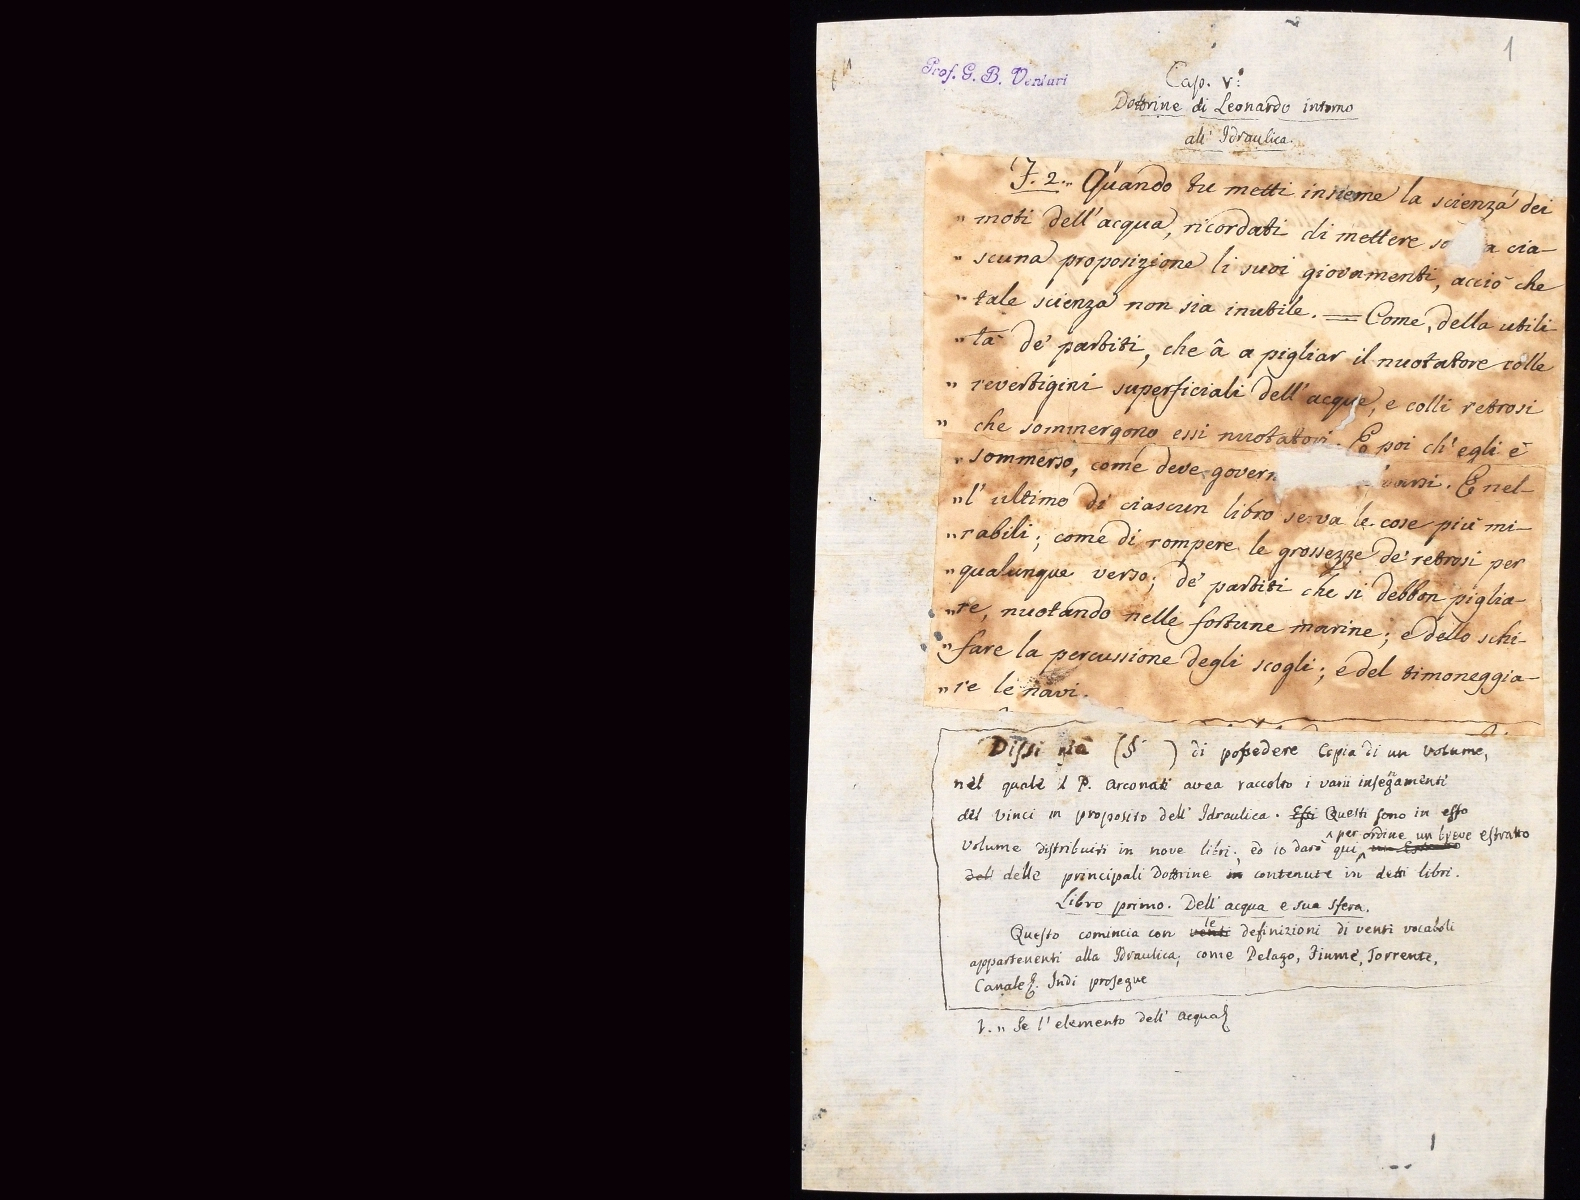 1
Prof. G. B. Venturi
Cap. V.°
Dottrine di Leonardo intorno
all' Idraulica.
F. 2. „ Quando tu metti insieme la scienza dei
„ moti dell'acqua, ricordati di mettere so a cia-
„ scuna proposizione li suoi giovamenti, acciò che
„ tale scienza non sia inutile. = Come, della utili-
„ tà de' partiti, che â a pigliar il nuotatore colle
„ revertigini superficiali dell'acque, e colli retrosi
„ che sommergono essi nuotatori. E poi ch'egli è
„ sommerso, come deve govern varsi. E nel-
„ l' ultimo di ciascun libro serva le cose più mi-
„ rabili; come di rompere le grossezze de' retrosi per
„ qualunque verso; de' partiti che si debbon piglia-
„ re, nuotando nelle fortune marine; e dello schi-
„ fare la percussione degli scogli; e del timoneggia-
„ re le navi.
Dissi già (§ ) di possedere Copia di un volume,
nel quale il P. Arconati avea raccolto i varii insegnamenti
del Vinci in proposito dell' Idraulica. Essi Questi sono in esso
volume distribuiti in nove libri; ed io darò qui per ordine un breve estratto
dell delle principali Dottrine in contenute in detti libri.
Libro primo. Dell' acqua e sua sfera.
Questo comincia con venti le definizioni di venti vocaboli
appartenenti alla Idraulica, come Pelago, Fiume, Torrente,
Canale &. Indi prosegue
1. „ Se l'elemento dell' acqua &
1